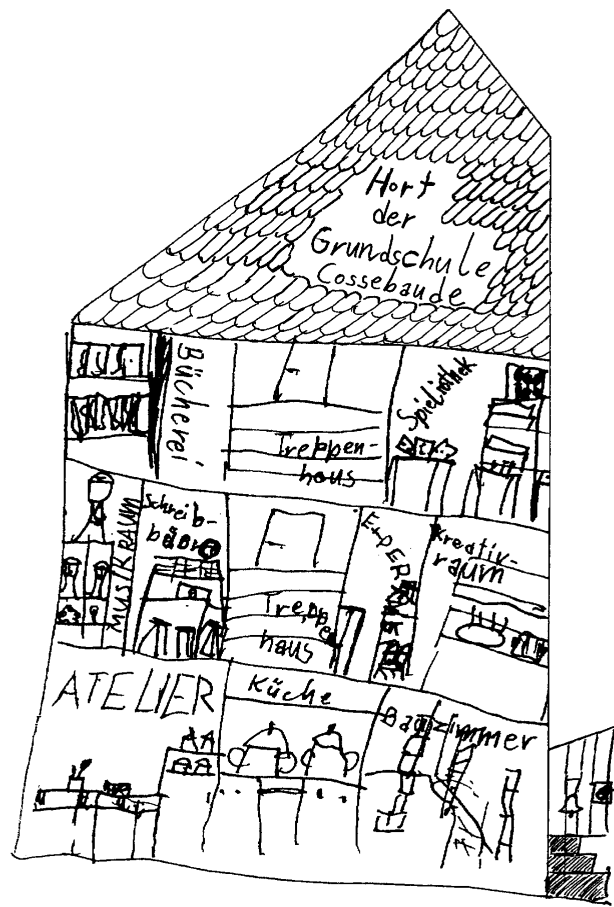 Hort
der
Grundschule
Cossebaude
Bücherei
Treppen-
haus
Spieliothek
MUSIKRAUM
Schreib-
büro
Treppen
haus
Kreativ-
raum
ATELIER
Küche
Bauzimmer